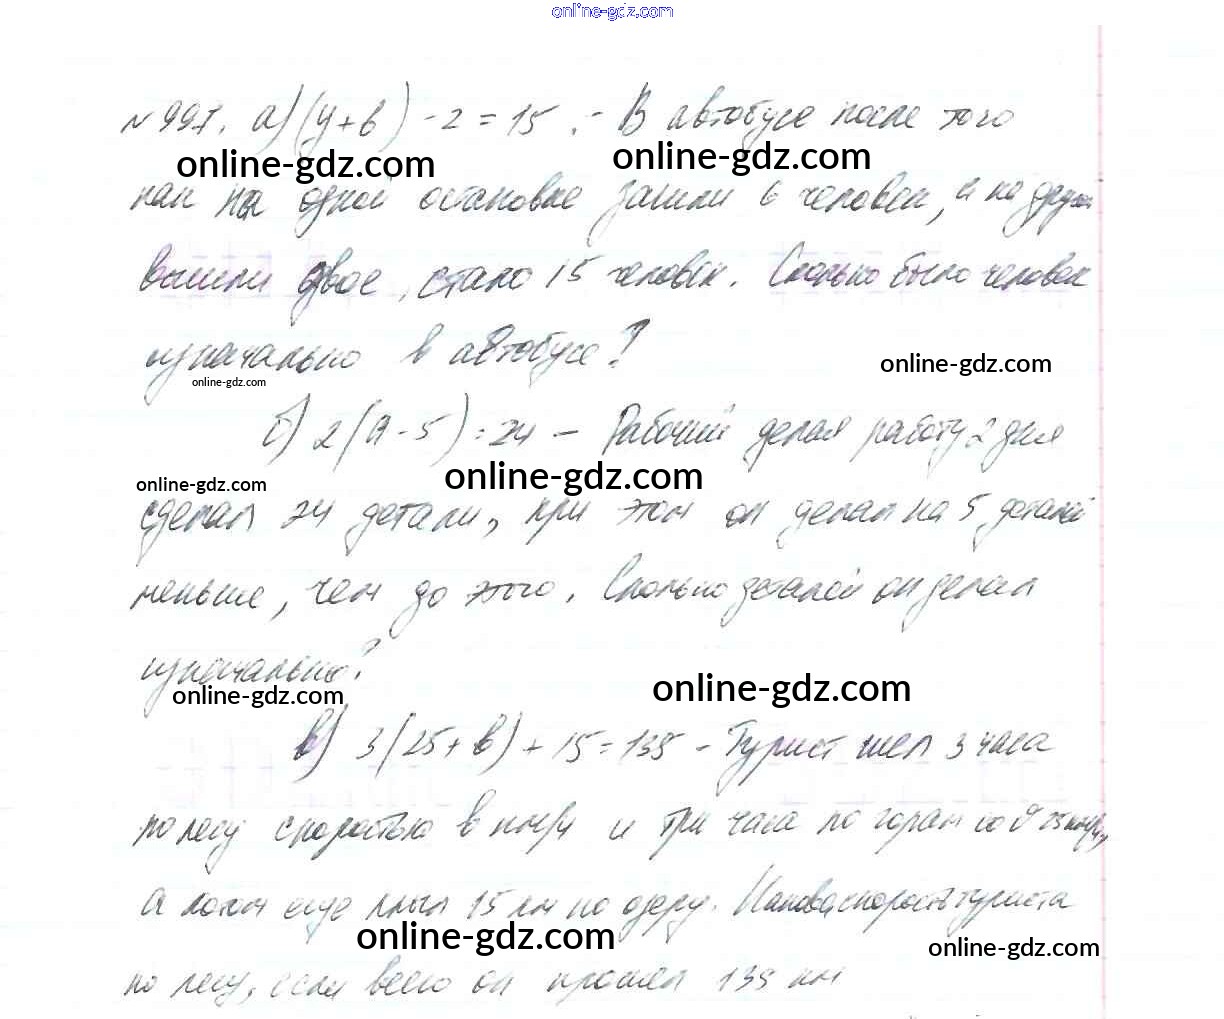 online-gdz.com
№ 997. а) (y+6) - 2 = 15 :- В автобусе после того
online-gdz.com online-gdz.com
как на одной остановке зашли 6 человек, и на другой
вышли двое, стало 15 человек. Сколько было человек
изначально в автобусе?
online-gdz.com
online-gdz.com
б) 2(a - 5) = 24 - Рабочий делая работу 2 дня
online-gdz.com online-gdz.com
сделал 24 детали, при этом он делал на 5 деталей
меньше, чем до этого. Сколько деталей он делал
изначально?
online-gdz.com online-gdz.com
в) 3(25 + b) + 15 = 135 - Турист шел 3 часа
по лесу скоростью b км/ч и три часа по горам со 25 км/ч,
а потом еще плыл 15 км по озеру. Какова скорость туриста
online-gdz.com online-gdz.com
по лесу, если всего он прошел 135 км